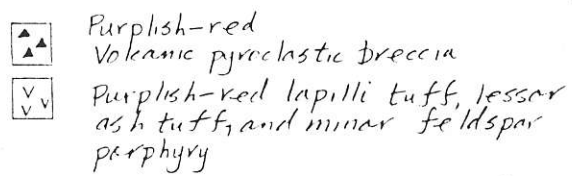 Purplish-red
Volcanic pyroclastic breccia
Purplish-red lapilli tuff, lesser
ash tuff, and minor feldspar
porphyry